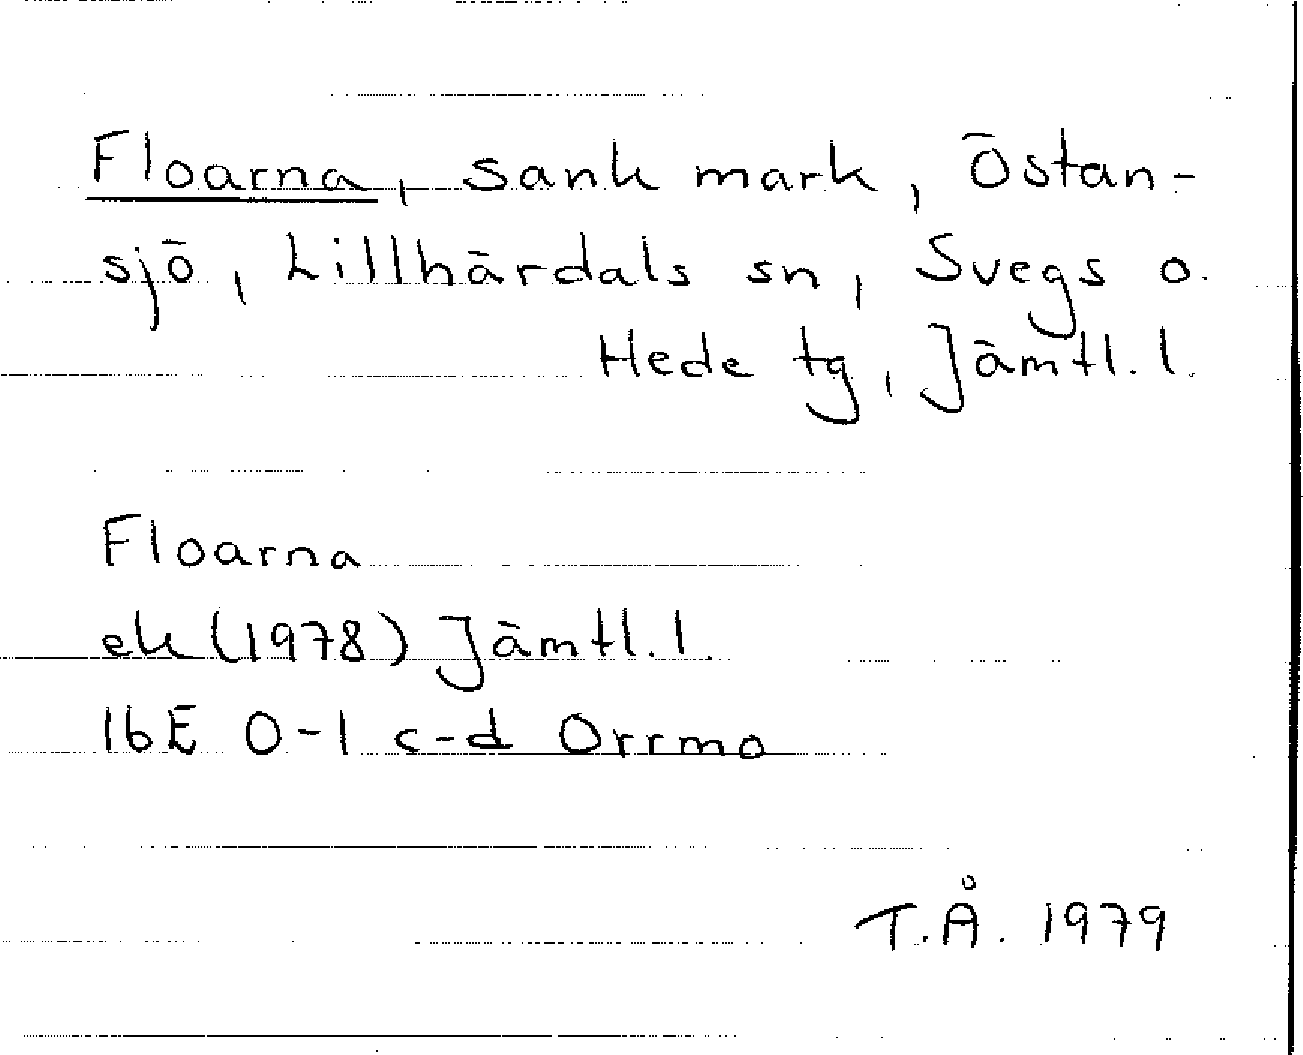 Floarna, sank mark, Östan-
sjö, Lillhärdals sn, Svegs o.
Hede tg, Jämtl. l.
Floarna
ek (1978) Jämtl. l.
16E 0-1 c-d Orrmo
T.Å. 1979